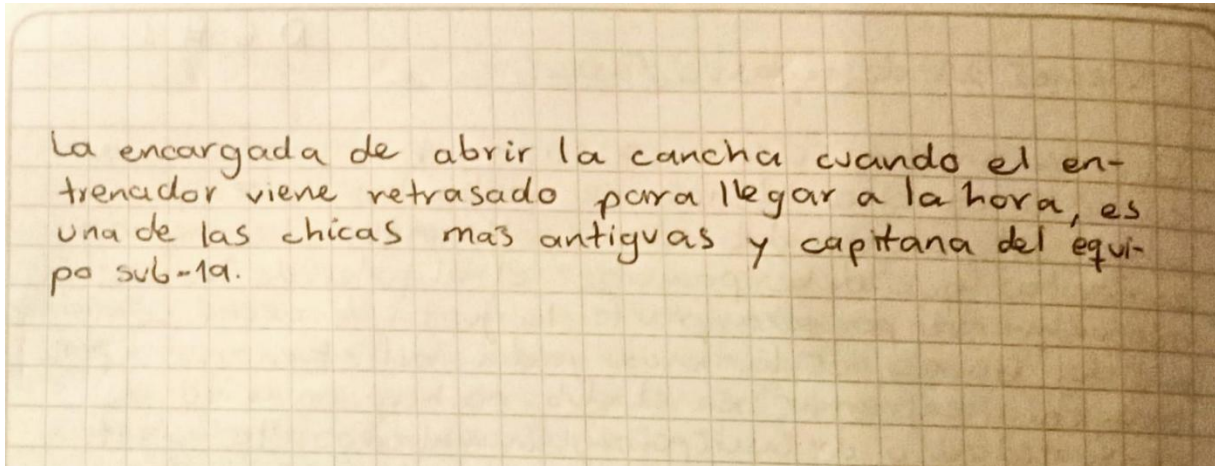 La encargada de abrir la cancha cuando el en-
trenador viene retrasado para llegar a la hora, es
una de las chicas más antiguas y capitana del equi-
po sub-19.